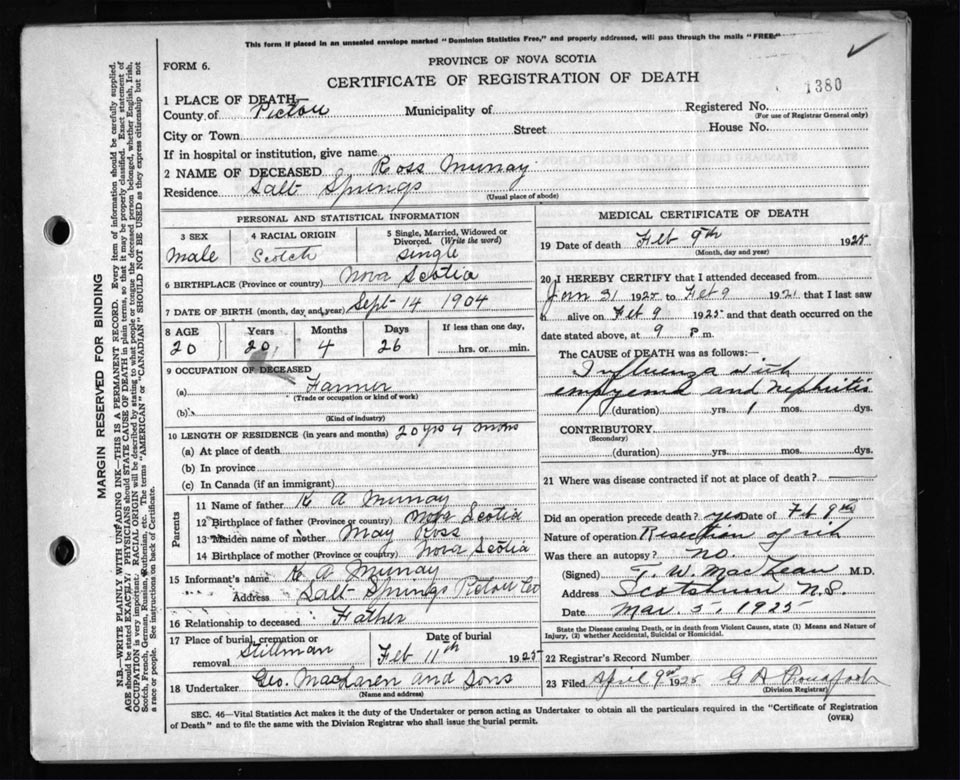 This form if placed in an unsealed envelope marked "Dominion Statistics Free," and properly addressed, will pass through the mails "FREE."
FORM 6.
PROVINCE OF NOVA SCOTIA
CERTIFICATE OF REGISTRATION OF DEATH
1380
1 PLACE OF DEATH—
County of Pictou Municipality of Registered No.
(For use of Registrar General only)
City or Town Street House No.
If in hospital or institution, give name
2 NAME OF DECEASED Ross Murray
Residence Salt Springs
(Usual place of abode)
MARGIN RESERVED FOR BINDING
N.B.—WRITE PLAINLY WITH UNFADING INK—THIS IS A PERMANENT RECORD. Every item of information should be carefully supplied.
AGE should be stated EXACTLY. PHYSICIANS should STATE CAUSE OF DEATH in plain terms, so that it may be properly classified. Exact statement of
OCCUPATION is very important. RACIAL ORIGIN will be described by stating to what people or tongue the deceased person belonged, whether English, Irish,
Scotch, French, German, Russian, Ruthenian, etc. The terms "AMERICAN" or "CANADIAN" SHOULD NOT BE USED as they express citizenship but not
a race or people. See instructions on back of Certificate.
PERSONAL AND STATISTICAL INFORMATION
3 SEX
Male
4 RACIAL ORIGIN
Scotch
5 Single, Married, Widowed or
Divorced. (Write the word)
Single
6 BIRTHPLACE (Province or country) Nova Scotia
7 DATE OF BIRTH (month, day and year) Sept 14 1904
8 AGE Years Months Days If less than one day,
20 20 4 26 hrs. or min.
9 OCCUPATION OF DECEASED
(a) Farmer
(Trade or occupation or kind of work)
(b)
(Kind of industry)
10 LENGTH OF RESIDENCE (in years and months) 20 yrs 4 mons
(a) At place of death
(b) In province
(c) In Canada (if an immigrant)
Parents
11 Name of father K A Murray
12 Birthplace of father (Province or country) Nova Scotia
13 Maiden name of mother May Ross
14 Birthplace of mother (Province or country) Nova Scotia
15 Informant's name K A Murray
Address Salt Springs Pictou Co
16 Relationship to deceased Father
17 Place of burial, cremation or
removal Stillman
Date of burial
Feb 11th 1925
18 Undertaker Geo. MacLaren and Sons
(Name and address)
MEDICAL CERTIFICATE OF DEATH
19 Date of death Feb 9th 1925
(Month, day and year)
20 I HEREBY CERTIFY that I attended deceased from
Jan 31 1925 to Feb 9 1921 that I last saw
h alive on Feb 9 1925 and that death occurred on the
date stated above, at 9 p m.
The CAUSE OF DEATH was as follows:—
Influenza with
empyema and nephritis
(duration) yrs. 1 mos. dys.
CONTRIBUTORY
(Secondary)
(duration) yrs. mos. dys.
21 Where was disease contracted if not at place of death?
Did an operation precede death? yes Date of Feb 9th
Nature of operation Resection of rib
Was there an autopsy? no.
(Signed) T. W. MacLean M.D.
Address Scotsburn N.S.
Date Mar. 5, 1925
State the Disease causing Death, or in death from Violent Causes, state (1) Means and Nature of
Injury, (2) whether Accidental, Suicidal or Homicidal.
22 Registrar's Record Number
23 Filed April 9 1925 G A
(Division Registrar)
SEC. 46—Vital Statistics Act makes it the duty of the Undertaker or person acting as Undertaker to obtain all the particulars required in the "Certificate of Registration
of Death" and to file the same with the Division Registrar who shall issue the burial permit.
(OVER)